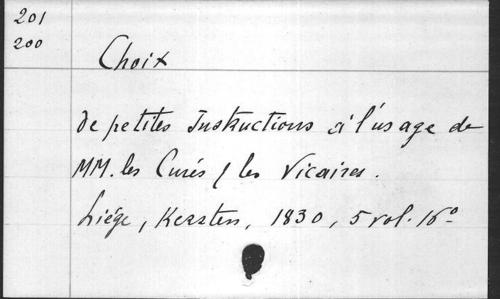 201
200
Choix
de petites Instructions à l'usage de
MM. les Curés / les Vicaires.
Liége, Kersten, 1830, 5 vol. 16°